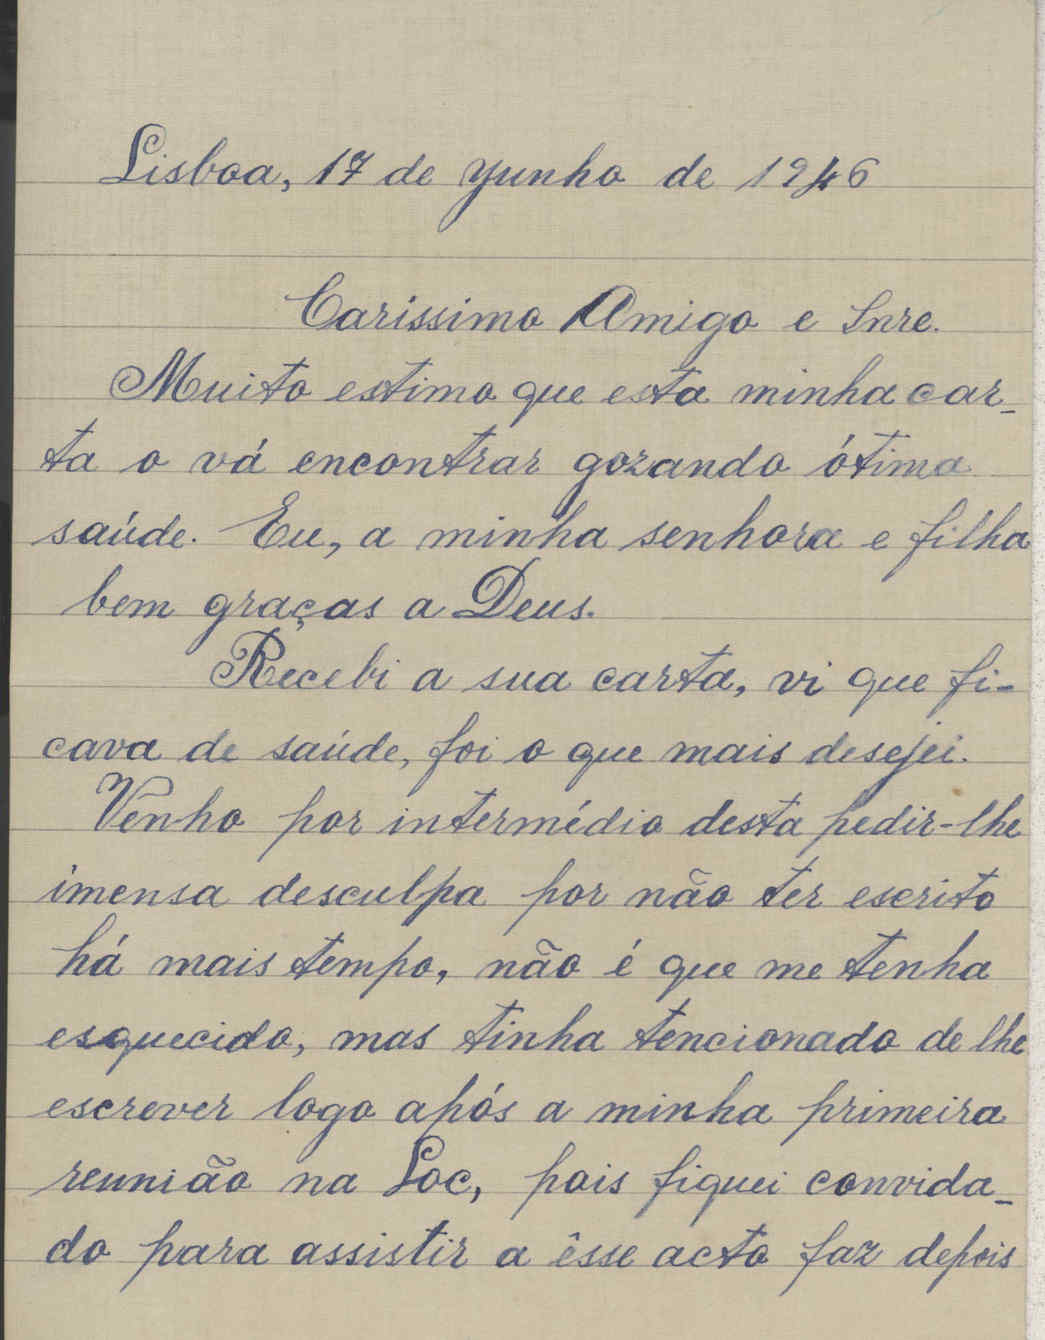 Lisboa, 17 de Junho de 1946
Carissimo Amigo e Snre.
Muito estimo que esta minha car-
ta o vá encontrar gozando ótima
saúde. Eu, a minha senhora e filha
bem graças a Deus.
Recebi a sua carta, vi que fi-
cava de saúde, foi o que mais desejei.
Venho por intermédio desta pedir-lhe
imensa desculpa por não ter escrito
há mais tempo, não é que me tenha
esquecido, mas tinha tencionado de lhe
escrever logo após a minha primeira
reunião na Loc, pois fiquei convida-
do para assistir a êsse acto faz depois